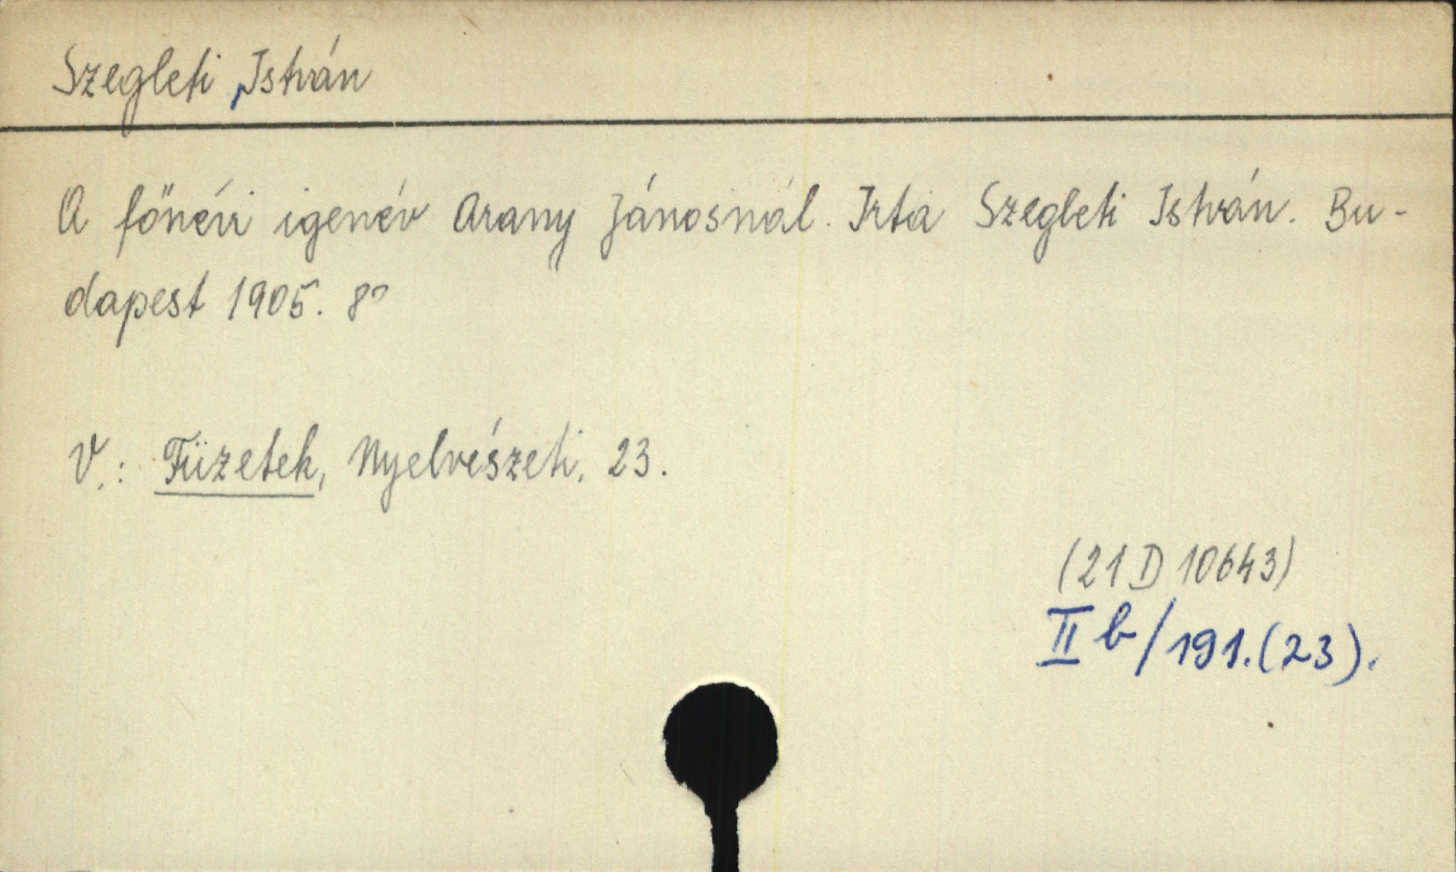 Szegleti, István
A főnévi igenév Arany Jánosnál. Irta Szegleti István. Bu-
dapest 1905. 8°
V.: Füzetek, Nyelvészeti, 23.
(21 D 10643)
II b/191.(23).